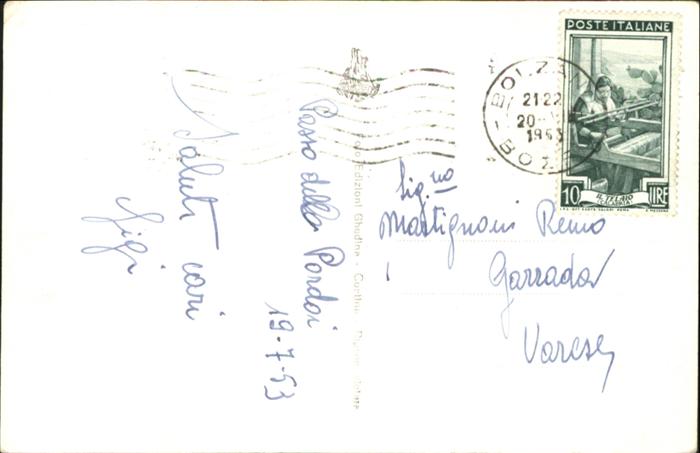 Saluti cari
Gigi
Passo della Pordoi
19-7-53
Foto Edizioni Ghedina - Cortina
POSTE ITALIANE
10 LIRE
IL TELAIO
BOLZANO
21 22
20
1953
BOZEN
Sig.no
Mastignoni Remo
Varese